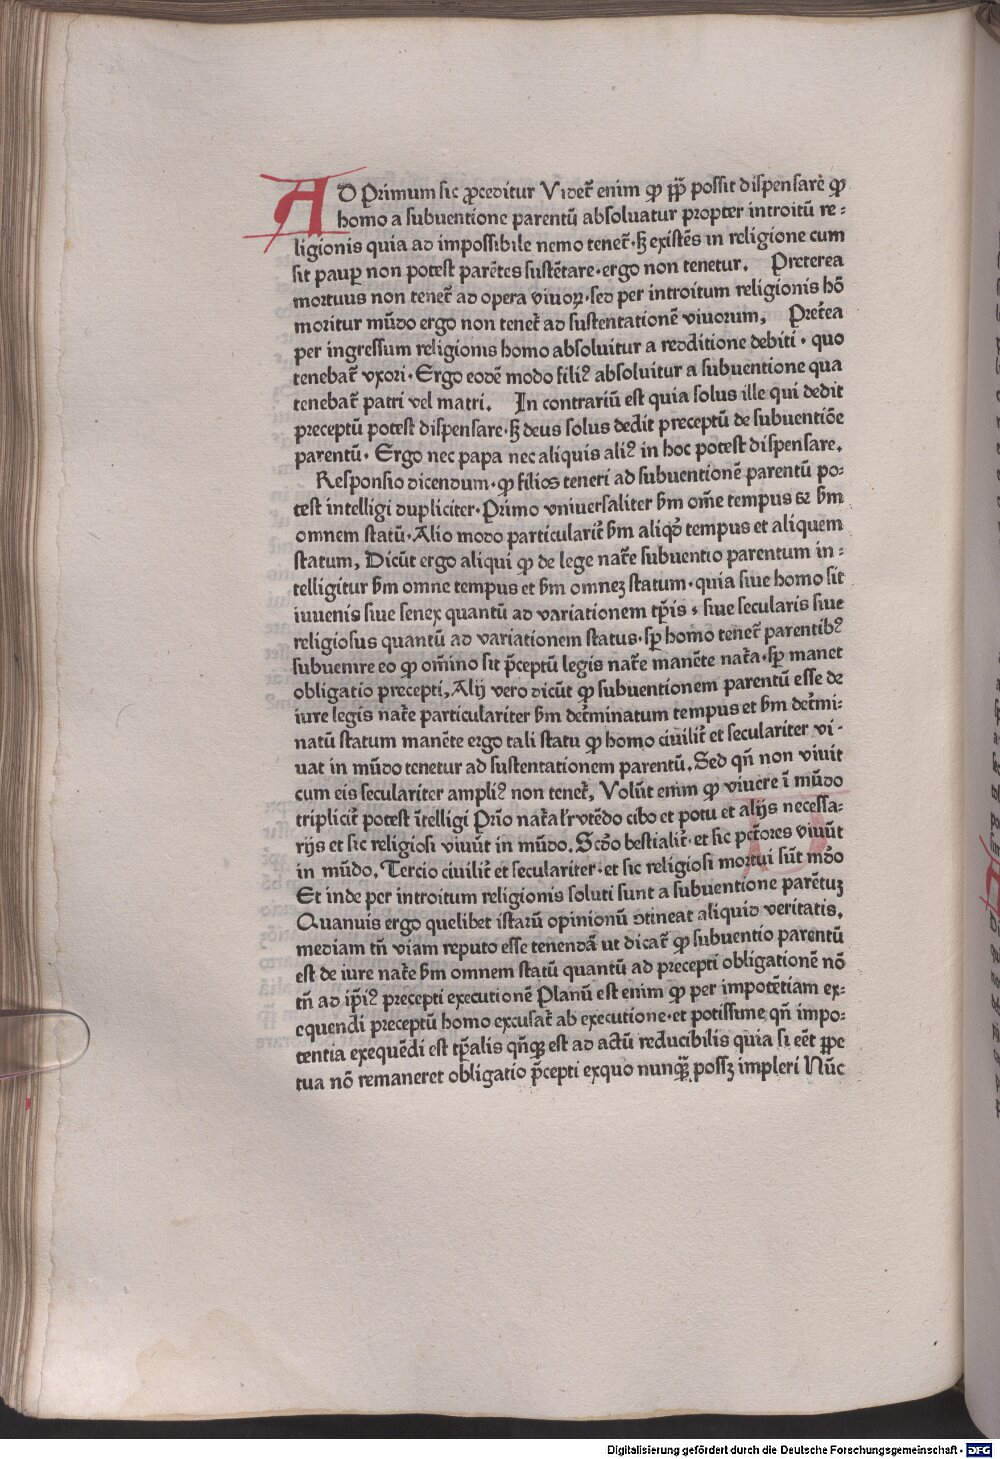 AD Primum sic ꝓceditur Videt᷑ enim ꝙ pp̄ possit dispensare ꝙ
homo a subuentione parentū absoluatur propter introitū re⸗
ligionis quia ad impossibile nemo tenet᷑·sꝫ existēs in religione cum
sit pauꝑ non potest parētes sustētare·ergo non tenetur. Preterea
mortuus non tenet᷑ ad opera viuoꝝ·sed per introitum religionis hō
moritur mūdo ergo non tenet᷑ ad sustentationē viuorum, Pret᷑ea
per ingressum religionis homo absoluitur a redditione debiti · quo
tenebat᷑ vxori·Ergo eodē modo filiꝰ absoluitur a subuentione qua
tenebat᷑ patri vel matri. In contrariū est quia solus ille qui dedit
preceptū potest dispensare·sꝫ deus solus dedit preceptū de subuentiōe
parentū· Ergo nec papa nec aliquis aliꝰ in hoc potest dispensare.
Responsio dicendum·ꝙ filios teneri ad subuentionē parentū po⸗
test intelligi dupliciter·Primo vniuersaliter ẜm om̄e tempus ⁊ ẜm
omnem statū·Alio modo particularit᷑ ẜm aliqd̄ tempus et aliquem
statum, Dicūt ergo aliqui ꝙ de lege nat᷑e subuentio parentum in⸗
telligitur ẜm omne tempus et ẜm omneꝫ statum·quia siue homo sit
iuuenis siue senex quantū ad variationem tp̄is · siue secularis siue
religiosus quantū ad variationem status·sp̄ homo tenet᷑ parentibꝰ
subuenire eo ꝙ om̄ino sit p̄ceptū legis nat᷑e manēte nat᷑a·sp̄ manet
obligatio precepti, Alij vero dicūt ꝙ subuentionem parentū esse de
iure legis nat᷑e particulariter ẜm det᷑minatum tempus et ẜm det᷑mi⸗
natū statum manēte ergo tali statu ꝙ homo ciuilit᷑ et seculariter vi⸗
uat in mūdo tenetur ad sustentationem parentū. Sed qn̄ non viuit
cum eis seculariter ampliꝰ non tenet᷑, Volūt enim ꝙ viuere ī mūdo
triplicit᷑ potest ītelligi Prīo nat᷑alr̄ vtēdo cibo et potu et alijs necessa⸗
rijs et sic religiosi viuūt in mūdo. Scd̄o bestialit᷑·et sic pct̄ores viuūt
in mūdo. Tercio ciuilit᷑ et seculariter·et sic religiosi mortui sūt mūdo
Et inde per introitum religionis soluti sunt a subuentione parētuꝫ
Quanuis ergo quelibet istarū opinionū ↄtineat aliquid veritatis,
mediam tn̄ viam reputo esse tenendā ut dicat᷑ ꝙ subuentio parentū
est de iure nat᷑e ẜm omnem statū quantū ad precepti obligationē nō
tn̄ ad ip̄iꝰ precepti executionē Planū est enim ꝙ per impotētiam ex⸗
equendi preceptū homo excusat᷑ ab executione·et potissime qn̄ impo⸗
tentia exequēdi est tp̄alis qn̄qꝫ est ad actū reducibilis quia si eēt ꝑpe
tua nō remaneret obligatio p̄cepti exquo nunqꝫ̄ possꝫ impleri Nūc
Digitalisierung gefördert durch die Deutsche Forschungsgemeinschaft - DFG